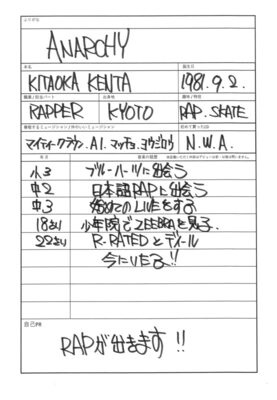 ふりがな
ANARCHY
本名
生年月日
KITAOKA KENTA
1981.9.2.
職業/担当パート
出身地
趣味/特技
RAPPER
KYOTO
RAP. SKATE
尊敬するミュージシャン/仲のいいミュージシャン
初めて買ったCD
マイティークラウン. A.I. マッチョ. ヨウジロウ
N.W.A.
年月
音楽の履歴
小3 ブルーハーツに出会う
中2 日本語RAPと出会う
中3 始めてのLIVEをする
18さい 少年院でZEEBRAを見る.
22さい R-RATEDとディール
今にいたる!!
自己PR
RAPが出きます!!